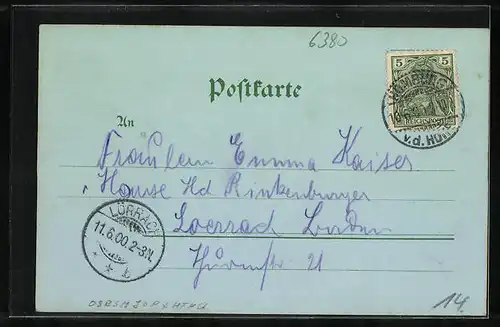 6380
Postkarte
5
HOMBURG
v.d. HÖHE
An
Fräulein Emma Kaiser
House Hd Rinkenburger
Loerrach Baden
Thurmstr 21
LÖRRACH
11.6.00.2-3N.
* b
14.-